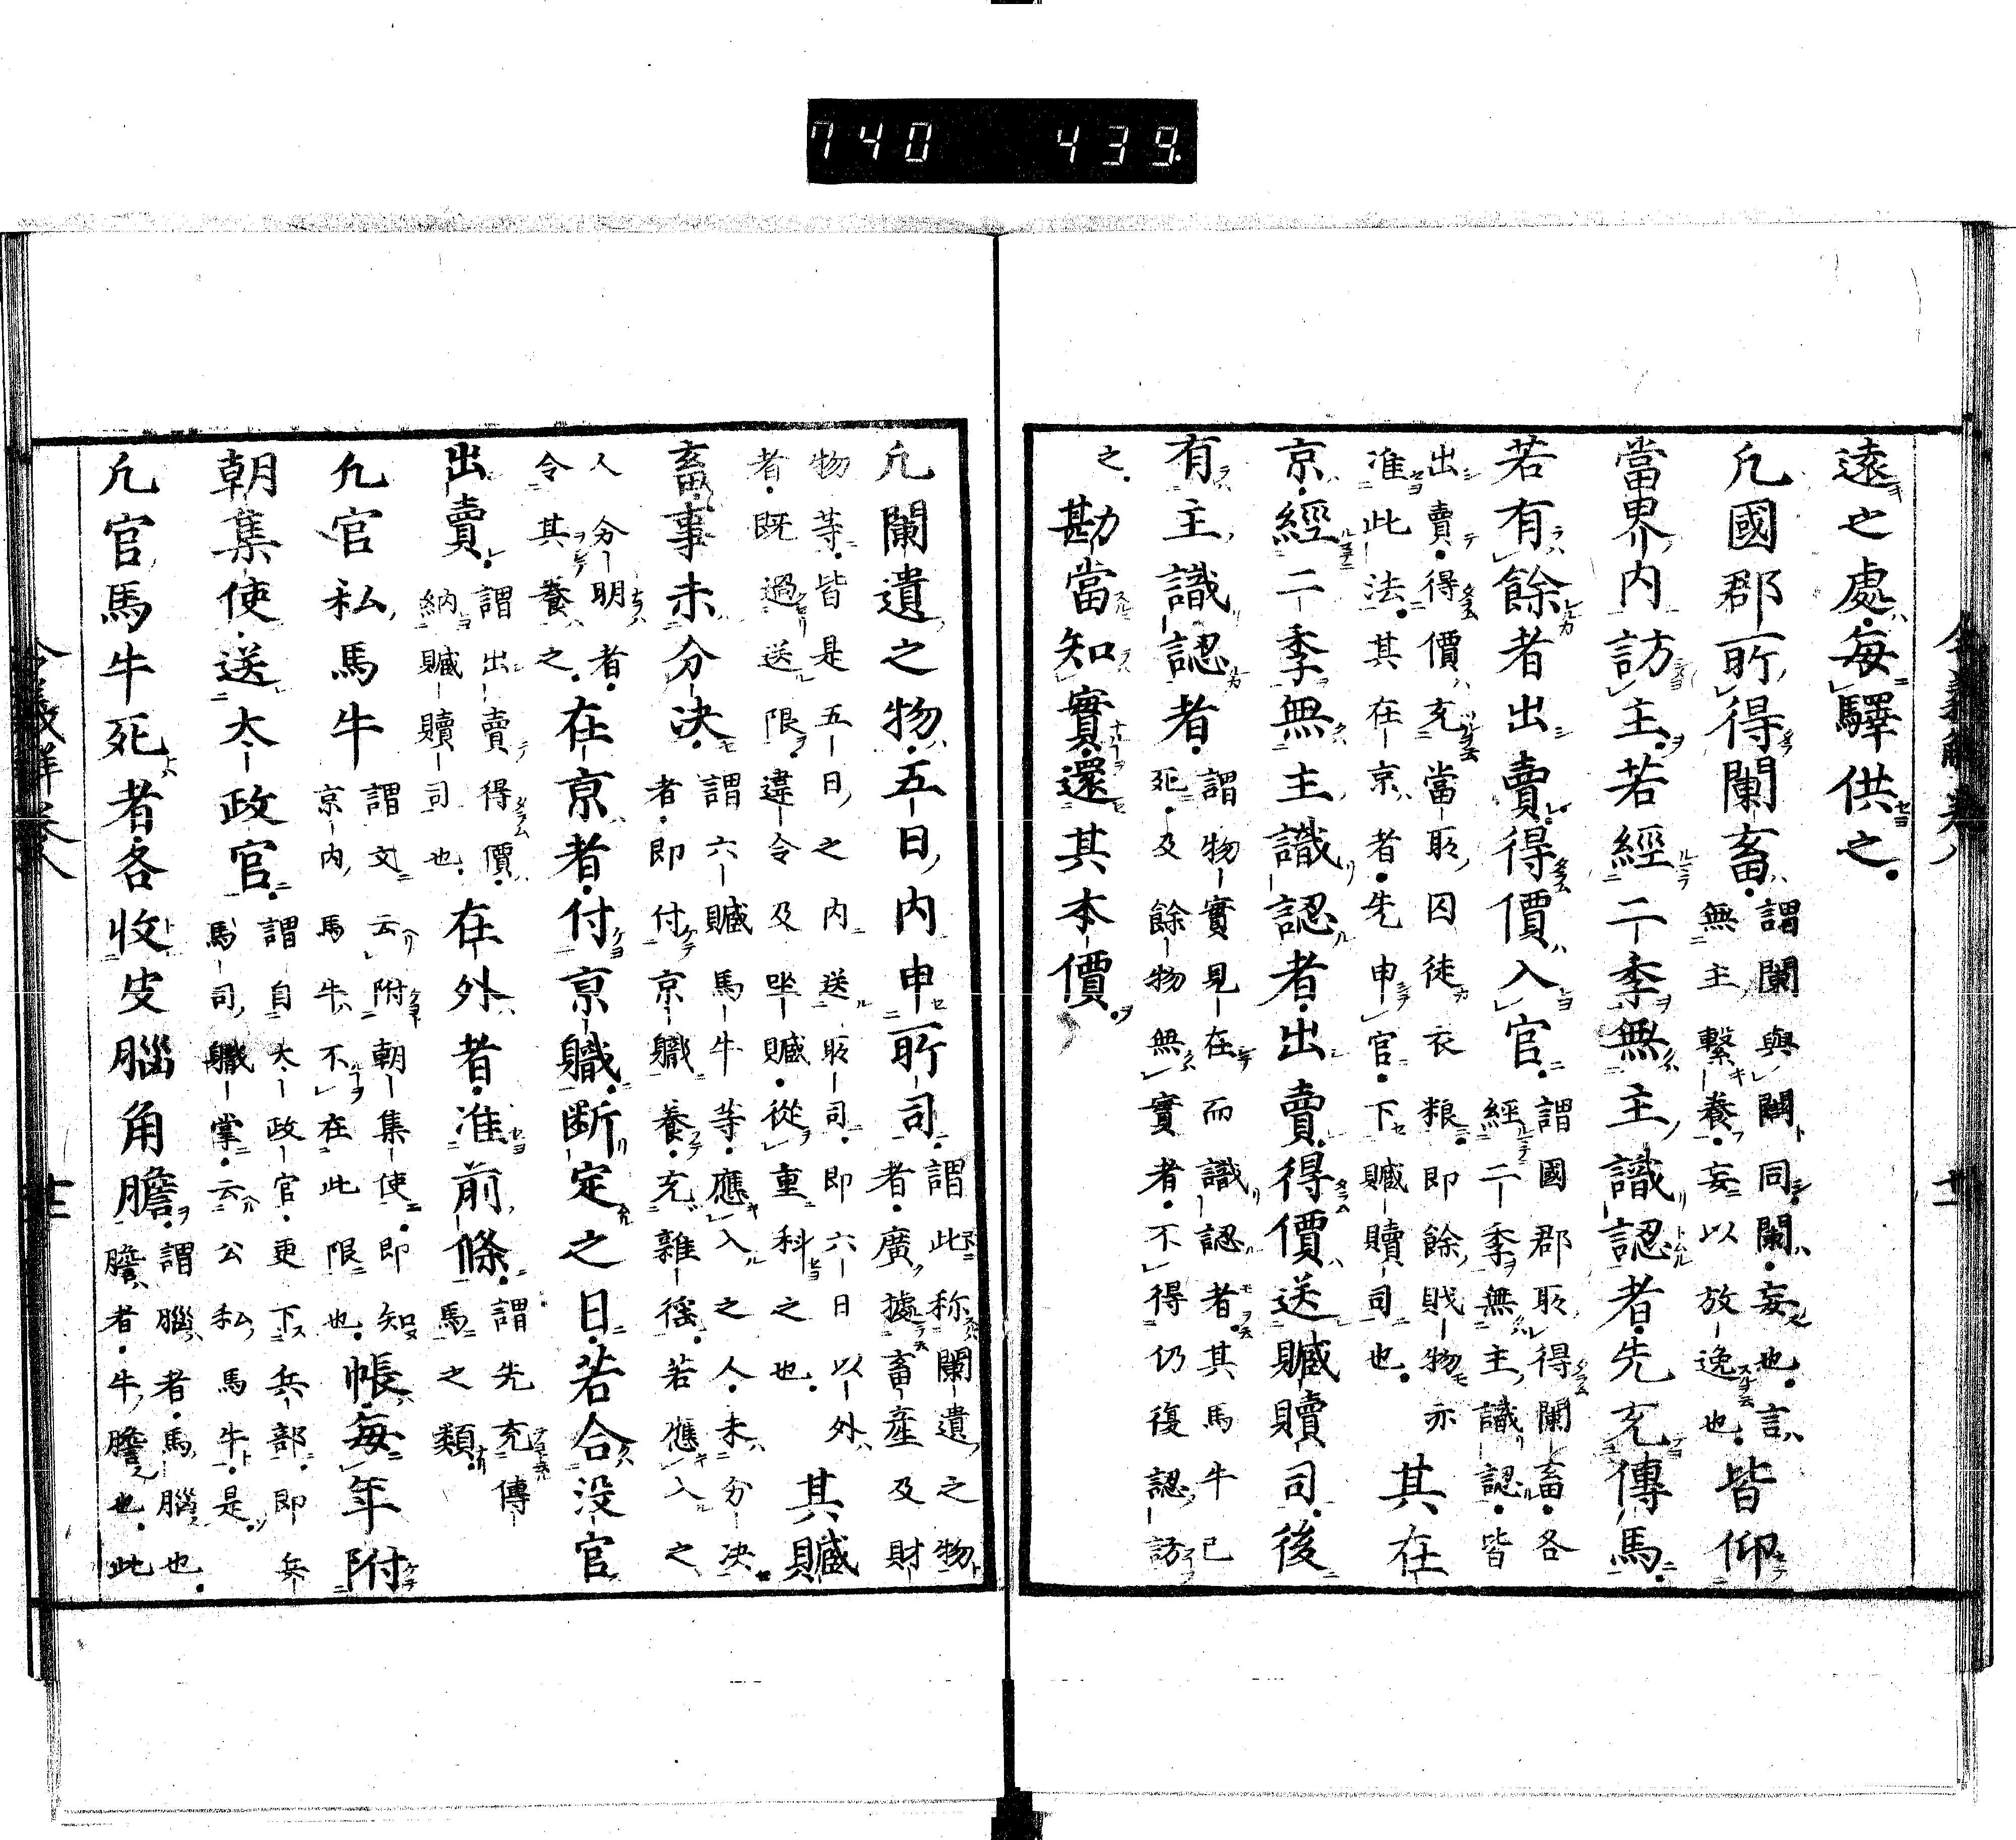 740 439
令義解巻八 廿一
遠之處。毎驛供之。
凡國郡所得闌畜。謂闌與闌同。闌。妄也。言
無主繫養。妄以放逸也。皆仰
當界内訪主。若經二季無主識認者。先充傳馬。
若有餘者出賣。得價入官。謂國郡所得闌畜。各
經二季無主識認。皆
出賣。得價充當所囚徒衣粮。即餘賎物亦
准此法。其在京者。先申官。下贓贖司也。其在
京。經二季無主識認者。出賣。得價送贓贖司。後
有主識認者。謂物實見在而識認者。其馬牛已
死。及餘物無實者。不得仍復認訪
之。勘當知實。還其本價。
凡闌遺之物。五日内申所司。謂此称闌遺之物
者。廣據畜産及財
物等。皆是五日之内送所司。即六日以外
者。既過送限。違令及坐贓。從重科之也。其贓
畜事未分决。謂六贓馬牛等。應入之人。未分决
者。即付京職養。充雜徭。若應入之
人分明者。
令其養之。在京者。付京職。断定之日。若合没官
出賣。謂出賣得價。
納贓贖司也。在外者。准前條。謂先充傳
馬之類。
凡官私馬牛謂文云附朝集使。即知
京内馬牛。不在此限也。帳。毎年附
朝集使。送太政官。謂自太政官。更下兵部。即兵
馬司職掌。云公私馬牛。是。
凡官馬牛死者。各收皮腦角膽。謂腦者。馬腦也。
膽者。牛膽也。此
令義解巻八 廿二